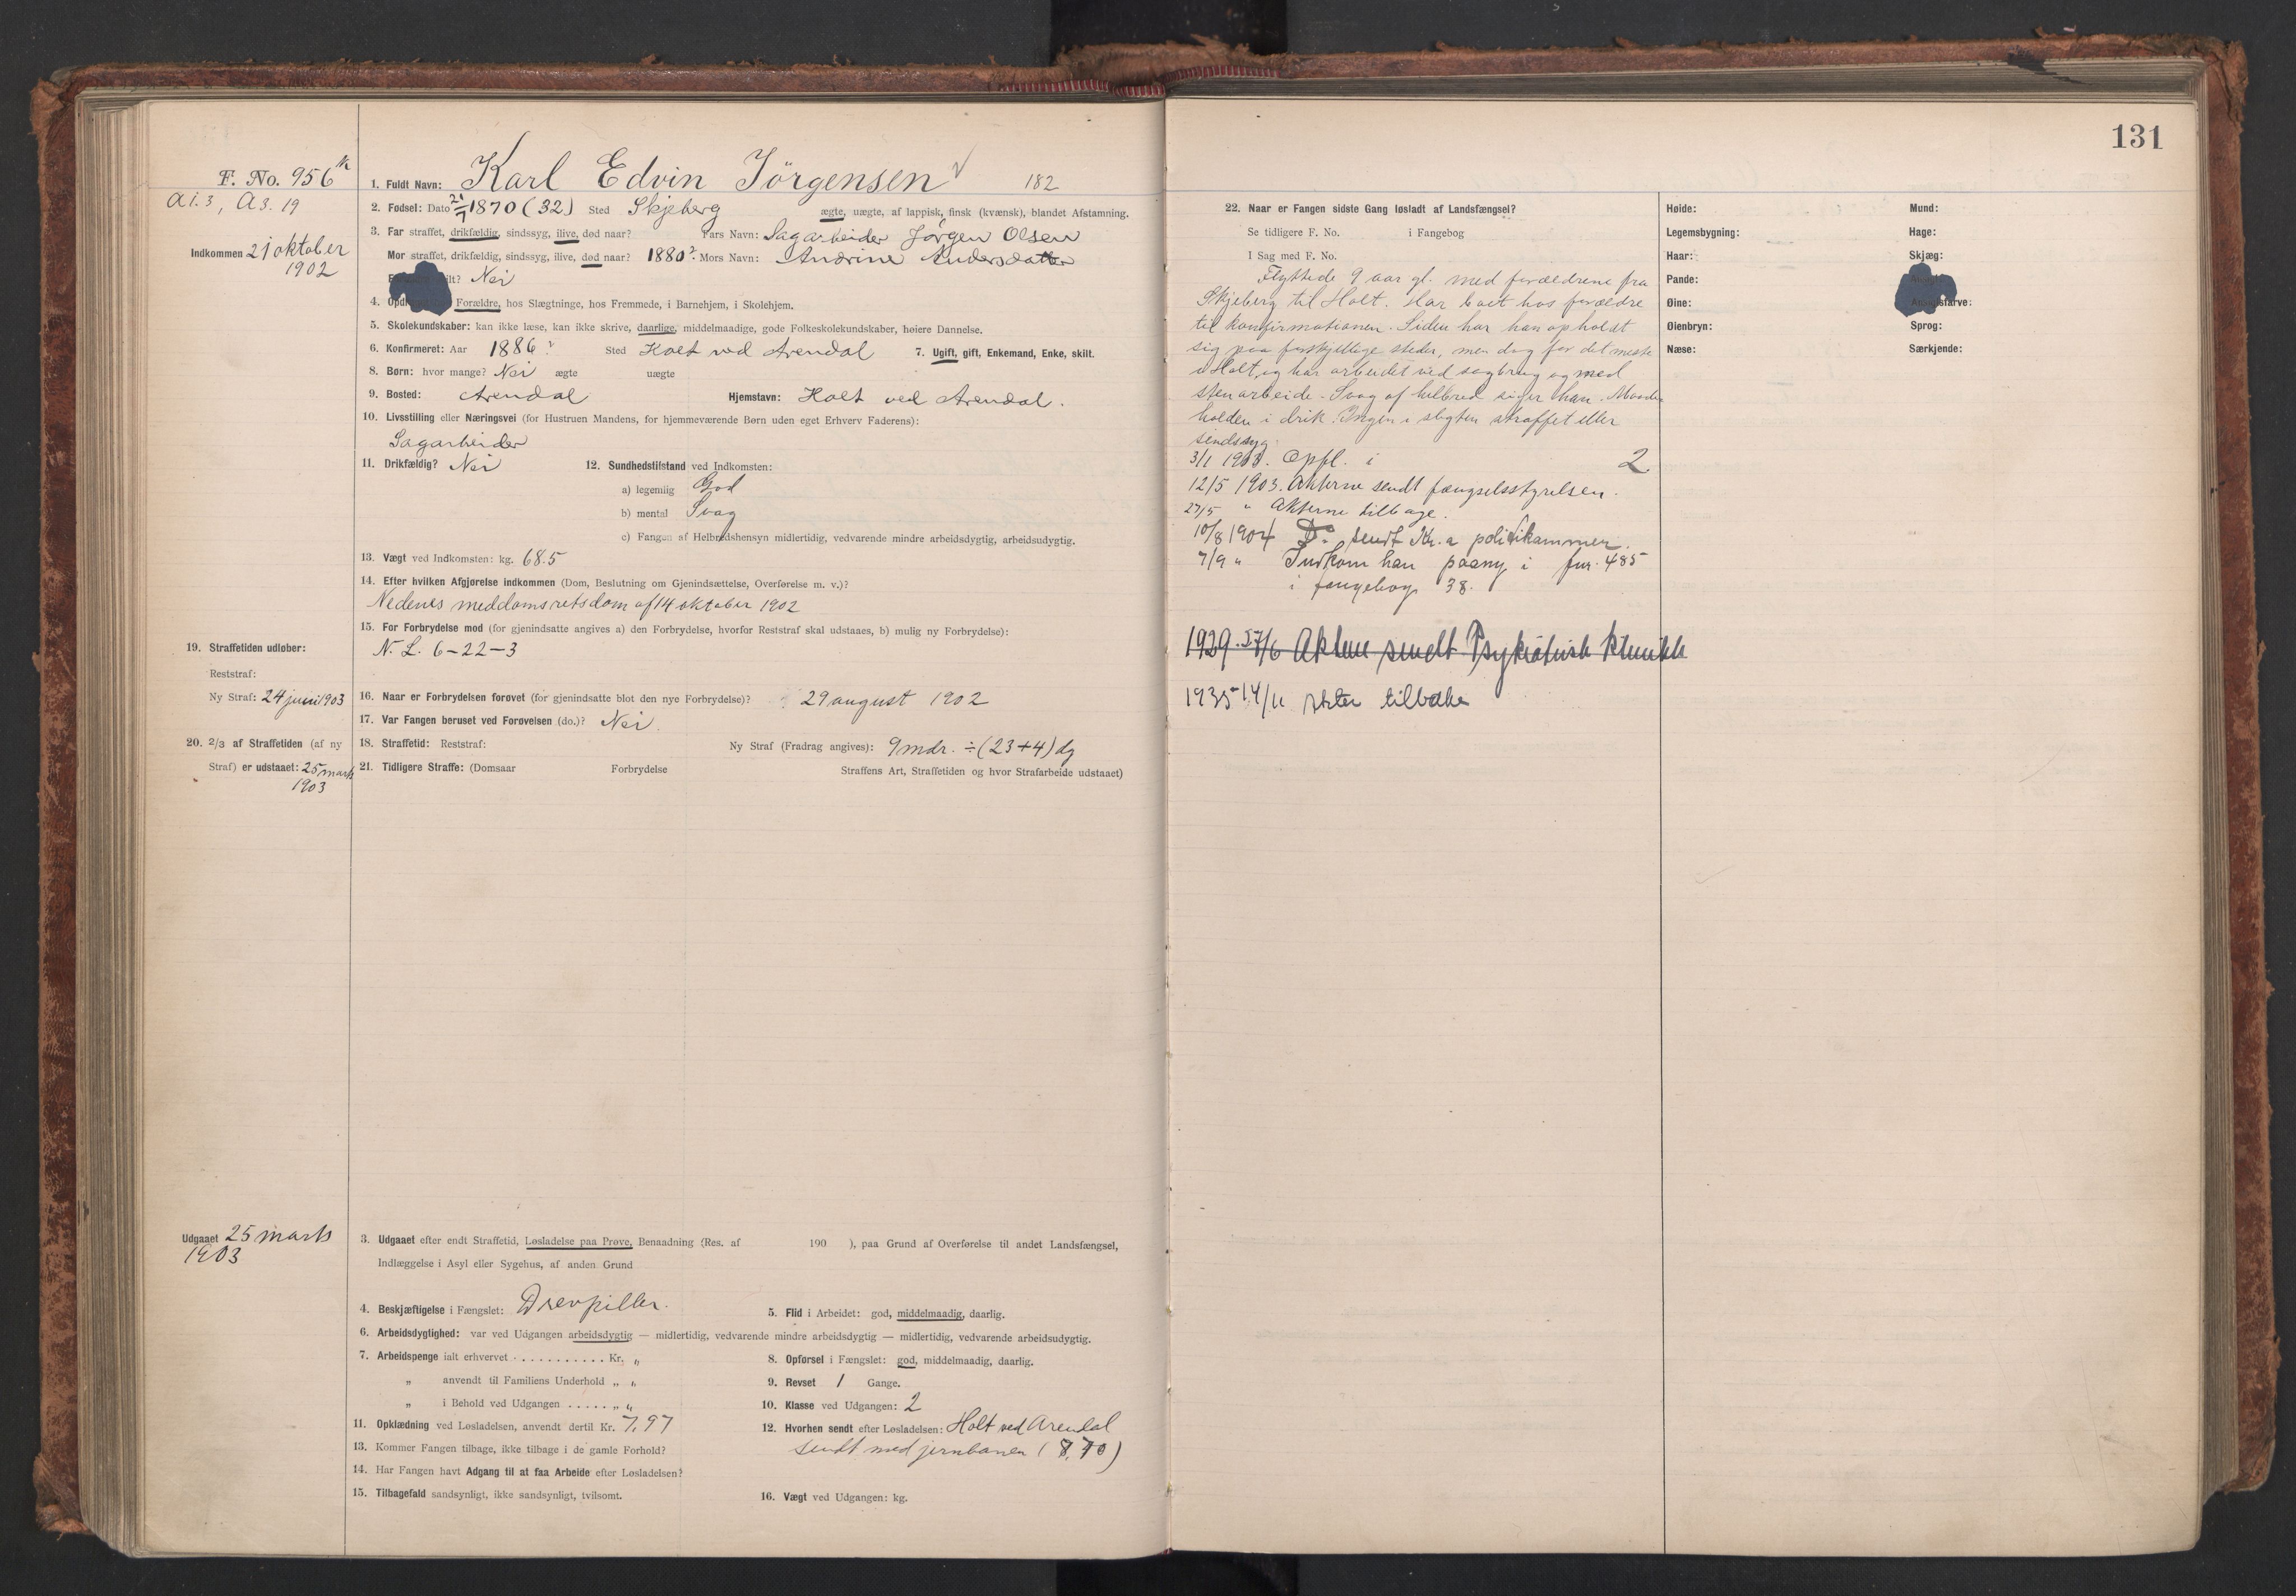 131
F. No. 956
A1.3, A3.19
Indkommen 21 oktober
1902
1. Fuldt Navn: Karl Edvin Jörgensen √ 182
2. Fødsel: Dato 1870 (32) Sted Skjeberg ægte, uægte, af lappisk, finsk (kvænsk), blandet Afstamning.
3. Far straffet, drikfældig, sindssyg, ilive, død naar? Fars Navn: Sagarbeider Jörgen Olsen
Mor straffet, drikfældig, sindssyg, ilive, død naar? 1880? Mors Navn: Andrine Andersdatter
Nei
4. Forældre, hos Slægtninge, hos Fremmede, i Barnehjem, i Skolehjem.
5. Skolekundskaber: kan ikke læse, kan ikke skrive, daarlige, middelmaadige, gode Folkeskolekundskaber, høiere Dannelse.
6. Konfirmeret: Aar 1886? Sted Holt ved Arendal 7. Ugift, gift, Enkemand, Enke, skilt.
8. Børn: hvor mange? Nei ægte uægte
9. Bosted: Arendal Hjemstavn: Holt ved Arendal.
10. Livsstilling eller Næringsvei (for Hustruen Mandens, for hjemmeværende Børn uden eget Erhverv Faderens):
Sagarbeider
11. Drikfældig? Nei 12. Sundhedstilstand ved Indkomsten:
a) legemlig God
b) mental Svag
c) Fangen af Helbredshensyn midlertidig, vedvarende mindre arbeidsdygtig, arbeidsudygtig.
13. Vægt ved Indkomsten: kg. 68.5
14. Efter hvilken Afgjørelse indkommen (Dom, Beslutning om Gjenindsættelse, Overførelse m. v.)?
Nedenes meddomsretsdom af 14 oktober 1902
15. For Forbrydelse mod (for gjenindsatte angives a) den Forbrydelse, hvorfor Reststraf skal udstaaes, b) mulig ny Forbrydelse):
N. L. 6-22-3
19. Straffetiden udløber:
Reststraf:
Ny Straf: 24 juni 1903
16. Naar er Forbrydelsen forøvet (for gjenindsatte blot den nye Forbrydelse)? 29 august 1902
17. Var Fangen beruset ved Forøvelsen (do.)? Nei.
20. 2/3 af Straffetiden (af ny
Straf) er udstaaet: 25 marts
1903
18. Straffetid: Reststraf: Ny Straf (Fradrag angives): 9 mdr. ÷ (23+4) dg
21. Tidligere Straffe: (Domsaar Forbrydelse Straffens Art, Straffetiden og hvor Strafarbeide udstaaet)
Udgaaet 25 marts
1903
3. Udgaaet efter endt Straffetid, Løsladelse paa Prøve, Benaadning (Res. af 190 ), paa Grund af Overførelse til andet Landsfængsel,
Indlæggelse i Asyl eller Sygehus, af anden Grund
4. Beskjæftigelse i Fængslet: Drevpiller. 5. Flid i Arbeidet: god, middelmaadig, daarlig.
6. Arbeidsdygtighed: var ved Udgangen arbeidsdygtig — midlertidig, vedvarende mindre arbeidsdygtig — midlertidig, vedvarende arbeidsudygtig.
7. Arbeidspenge ialt erhvervet . . . . . . . . . . . Kr. „ 8. Opførsel i Fængslet: god, middelmaadig, daarlig.
„ anvendt til Familiens Underhold „ „ 9. Revset 1 Gange.
„ i Behold ved Udgangen . . . . . „ „ 10. Klasse ved Udgangen: 2
11. Opklædning ved Løsladelsen, anvendt dertil Kr. 7,97 12. Hvorhen sendt efter Løsladelsen: Holt ved Arendal
13. Kommer Fangen tilbage, ikke tilbage i de gamle Forhold? sendt med jernbanen (8,70)
14. Har Fangen havt Adgang til at faa Arbeide efter Løsladelsen?
15. Tilbagefald sandsynligt, ikke sandsynligt, tvilsomt. 16. Vægt ved Udgangen: kg.
22. Naar er Fangen sidste Gang løsladt af Landsfængsel?
Se tidligere F. No. i Fangebog
I Sag med F. No.
Flyttede 9 aar gl. med forældrene fra
Skjeberg til Holt. Har boet hos forældre
til konfirmationen. Siden har han opholdt
sig paa forskjellige steder, men dog for det meste
i Holt, og har arbeidet ved sagbrug og med
stenarbeide. Svag af helbred siger han. Maade-
holden i drik. Ingen i slegten straffet eller
sindssyg.
3/1 1903. Opfl. i 2
12/5 1903. Akterne sendt fængselsstyrelsen.
27/5 " Akterne tilbage.
10/8 1904 Do sendt Kr.a politikammer.
7/9 " Indkom han paany i fnr. 485
i fangebog 38.
1929. 27/6 Aktene sendt Psykiatrisk Klinikk
1935 14/11 akter tilbake
Høide: Mund:
Legemsbygning: Hage:
Haar: Skjæg:
Pande:
Øine: Ansigtsfarve:
Øienbryn: Sprog:
Næse: Særkjende: